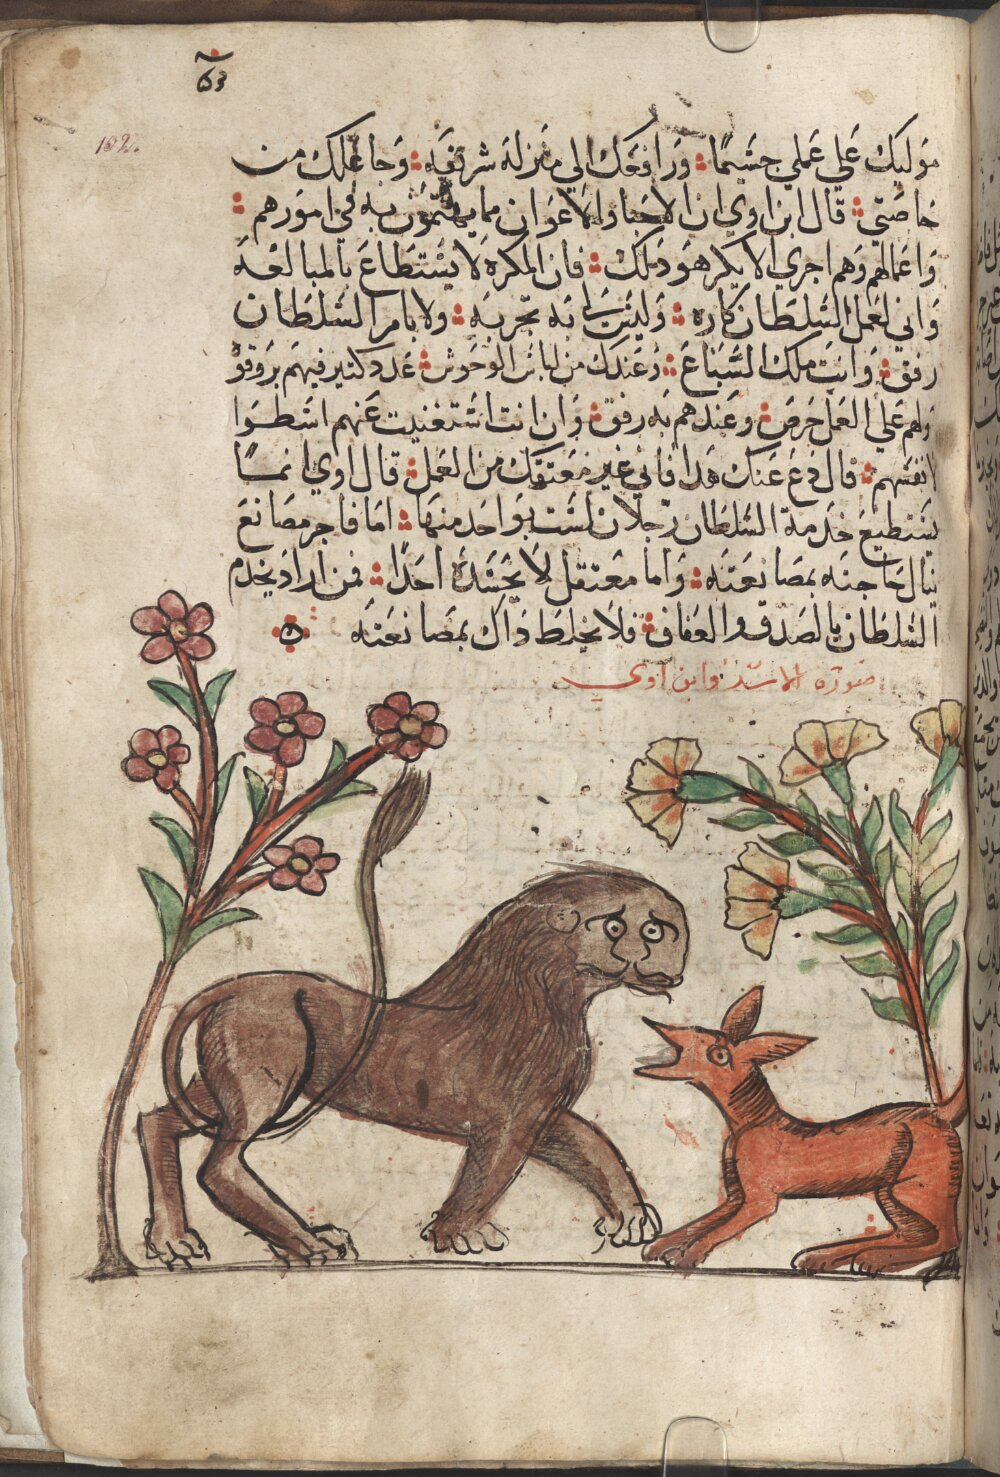 182.
موليك علي عملي جسيمًا ورافعك الي منزلة شريفه وجاعلك من
خاصتي قال ابن اوي ان الاجناد والاعوان مما يهتمون به في امورهم
واعمالهم وهم احري الا يكرهو ذلك فان المكره لا يستطاع بالمبالغه
واني لعمل السلطان كاره وليس لي به تجربه ولا بامر السلطان
رفق وانت ملك السباع وعندك من اجناس الوحوش عدد كثير فيهم
ولهم علي العمل حرص وعندهم به رفق وان انت استغنيت عنهم
لانفسهم قال دع عنك هدا فاني غير معتقك من العمل قال اوي انما
يستطيع خدمة السلطان رجلان لست بواحد منهما اما فاجر مصانع
ينال حاجته بمصانعته واما معتقل لا يحسده احدًا فمن اراد يخدم
السلطان بالصدق والعفاف فلا يخلط ذاك بمصانعته ه
صورة الاسد وابن اوي